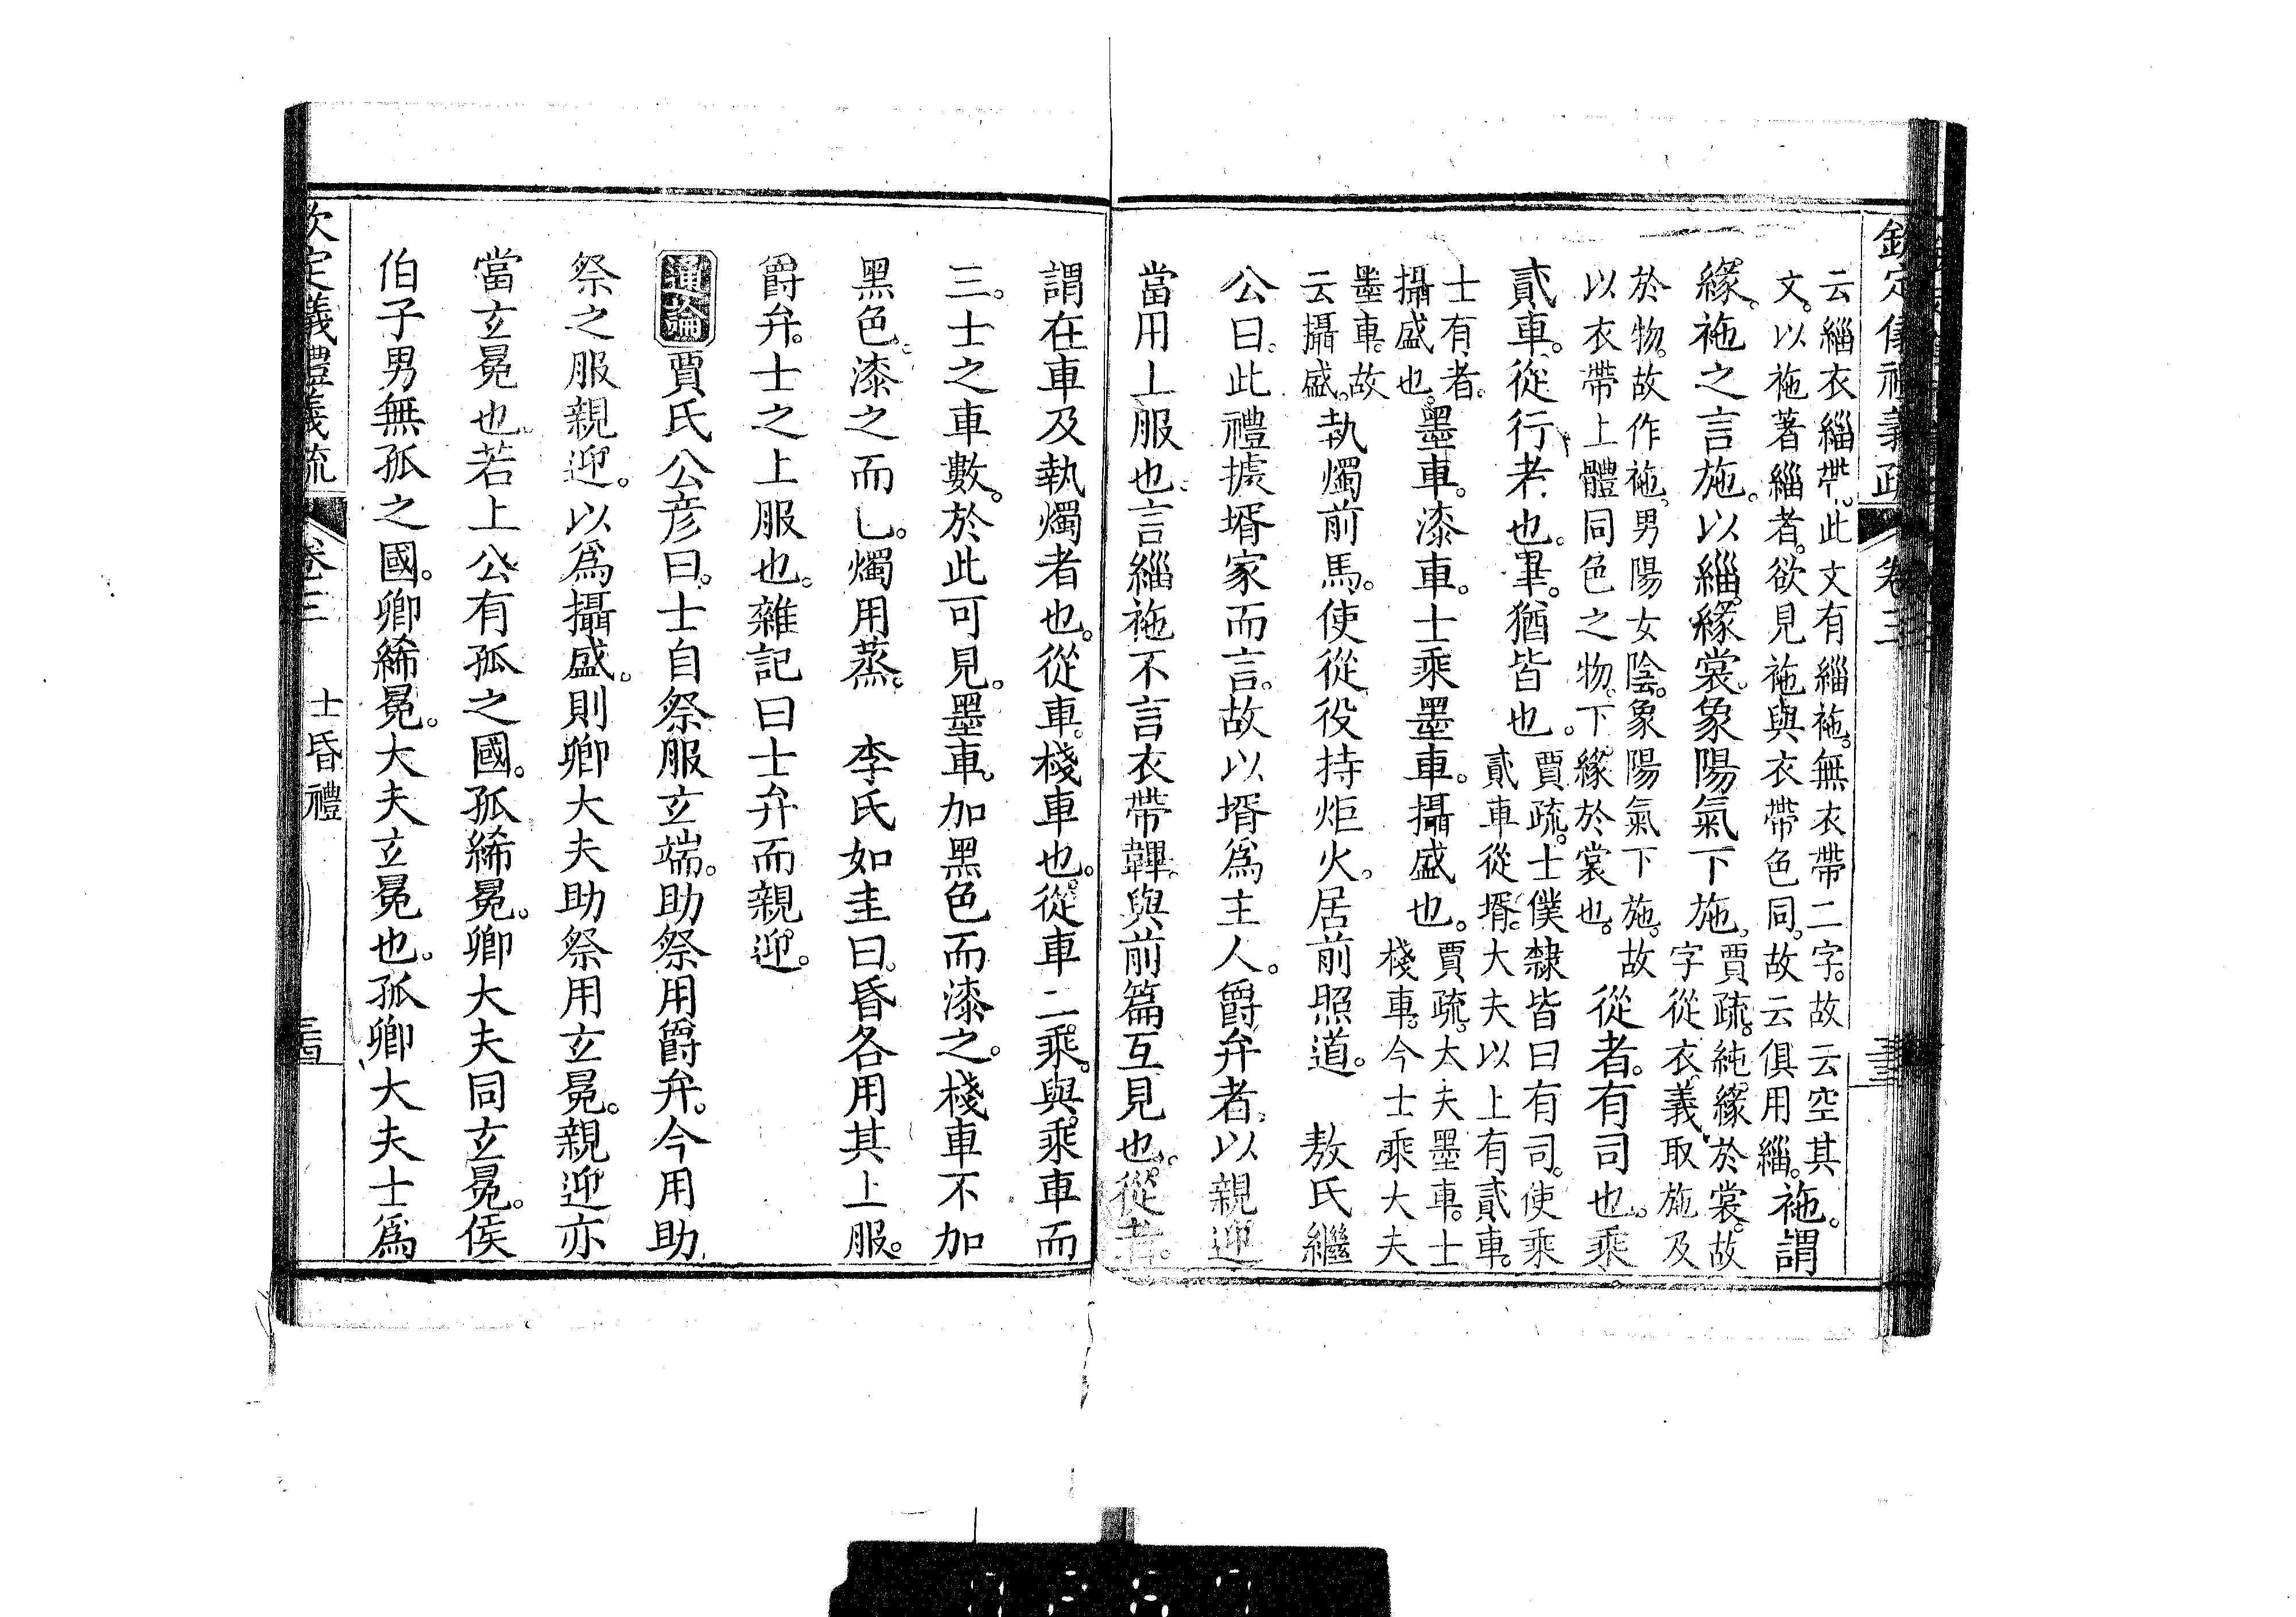 欽定儀禮義疏 卷三
云緇衣緇帶。此文有緇袘。無衣帶二字。故云空其
文。以袘著緇者。欲見袘與衣帶色同。故云俱用緇。袘。謂
緣。袘之言施。以緇緣裳。象陽氣下施。
賈疏。純。緣於裳。故
字從衣。義取施及
於物。故作袘。男陽女陰。象陽氣下施。故
以衣帶上體同色之物。下緣於裳也。
從者。有司也。乘
貳車。從行者也。畢。猶皆也。
賈疏。士僕隸皆曰有司。使乘
貳車從壻。大夫以上有貳車。
士有者。
攝盛也。
墨車。漆車。士乘墨車。攝盛也。
賈疏。大夫墨車。士
棧車。今士乘大夫
墨車。故
云攝盛。
執燭前馬。使從役持炬火。居前照道。 敖氏繼
公曰。此禮據壻家而言。故以壻爲主人。爵弁者。以親迎
當用上服也。言緇袘不言衣帶韠。與前篇互見也。從者。
謂在車及執燭者也。從車。棧車也。從車二乘。與乘車而
三。士之車數。於此可見。墨車。加黑色而漆之。棧車不加
黑色。漆之而已。燭用蒸。 李氏如圭曰。昏各用其上服。
爵弁。士之上服也。雜記曰士弁而親迎。
通論 賈氏公彦曰。士自祭服玄端。助祭用爵弁。今用助
祭之服親迎。以爲攝盛。則卿大夫助祭用玄冕。親迎亦
當玄冕也。若上公有孤之國。孤絺冕。卿大夫同玄冕。侯
伯子男無孤之國。卿絺冕。大夫玄冕也。孤卿大夫士爲
欽定義禮義疏 卷三 士昏禮